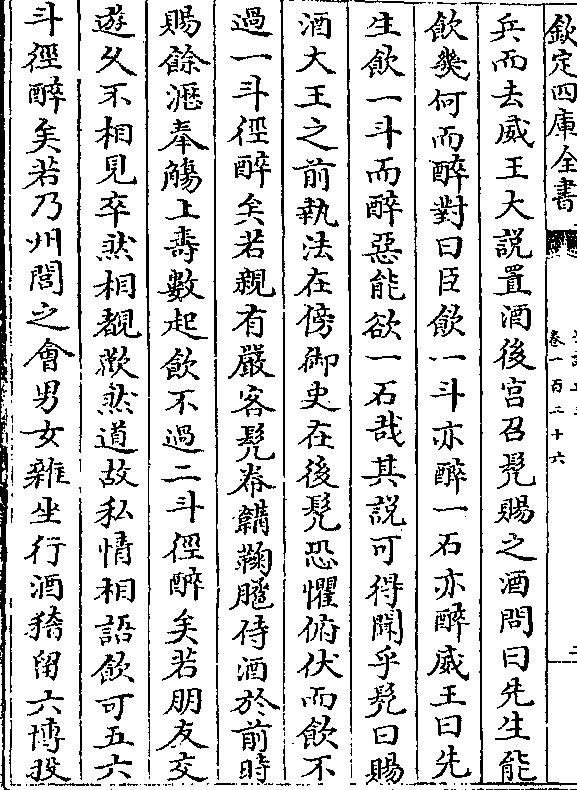 欽定四庫全書
卷一百二十六
兵而去威王大説置酒後宫召髠賜之酒問曰先生能
飲幾何而醉對曰臣飲一斗亦醉一石亦醉威王曰先
生飲一斗而醉惡能飲一石哉其説可得聞乎髠曰賜
酒大王之前執法在傍御史在後髠恐懼俯伏而飲不
過一斗徑醉矣若親有嚴客髠帣鞲鞠䠆侍酒於前時
賜餘瀝奉觴上壽數起飲不過二斗徑醉矣若朋友交
遊久不相見卒然相覩歡然道故私情相語飲可五六
斗徑醉矣若乃州閭之會男女雜坐行酒稽留六博投